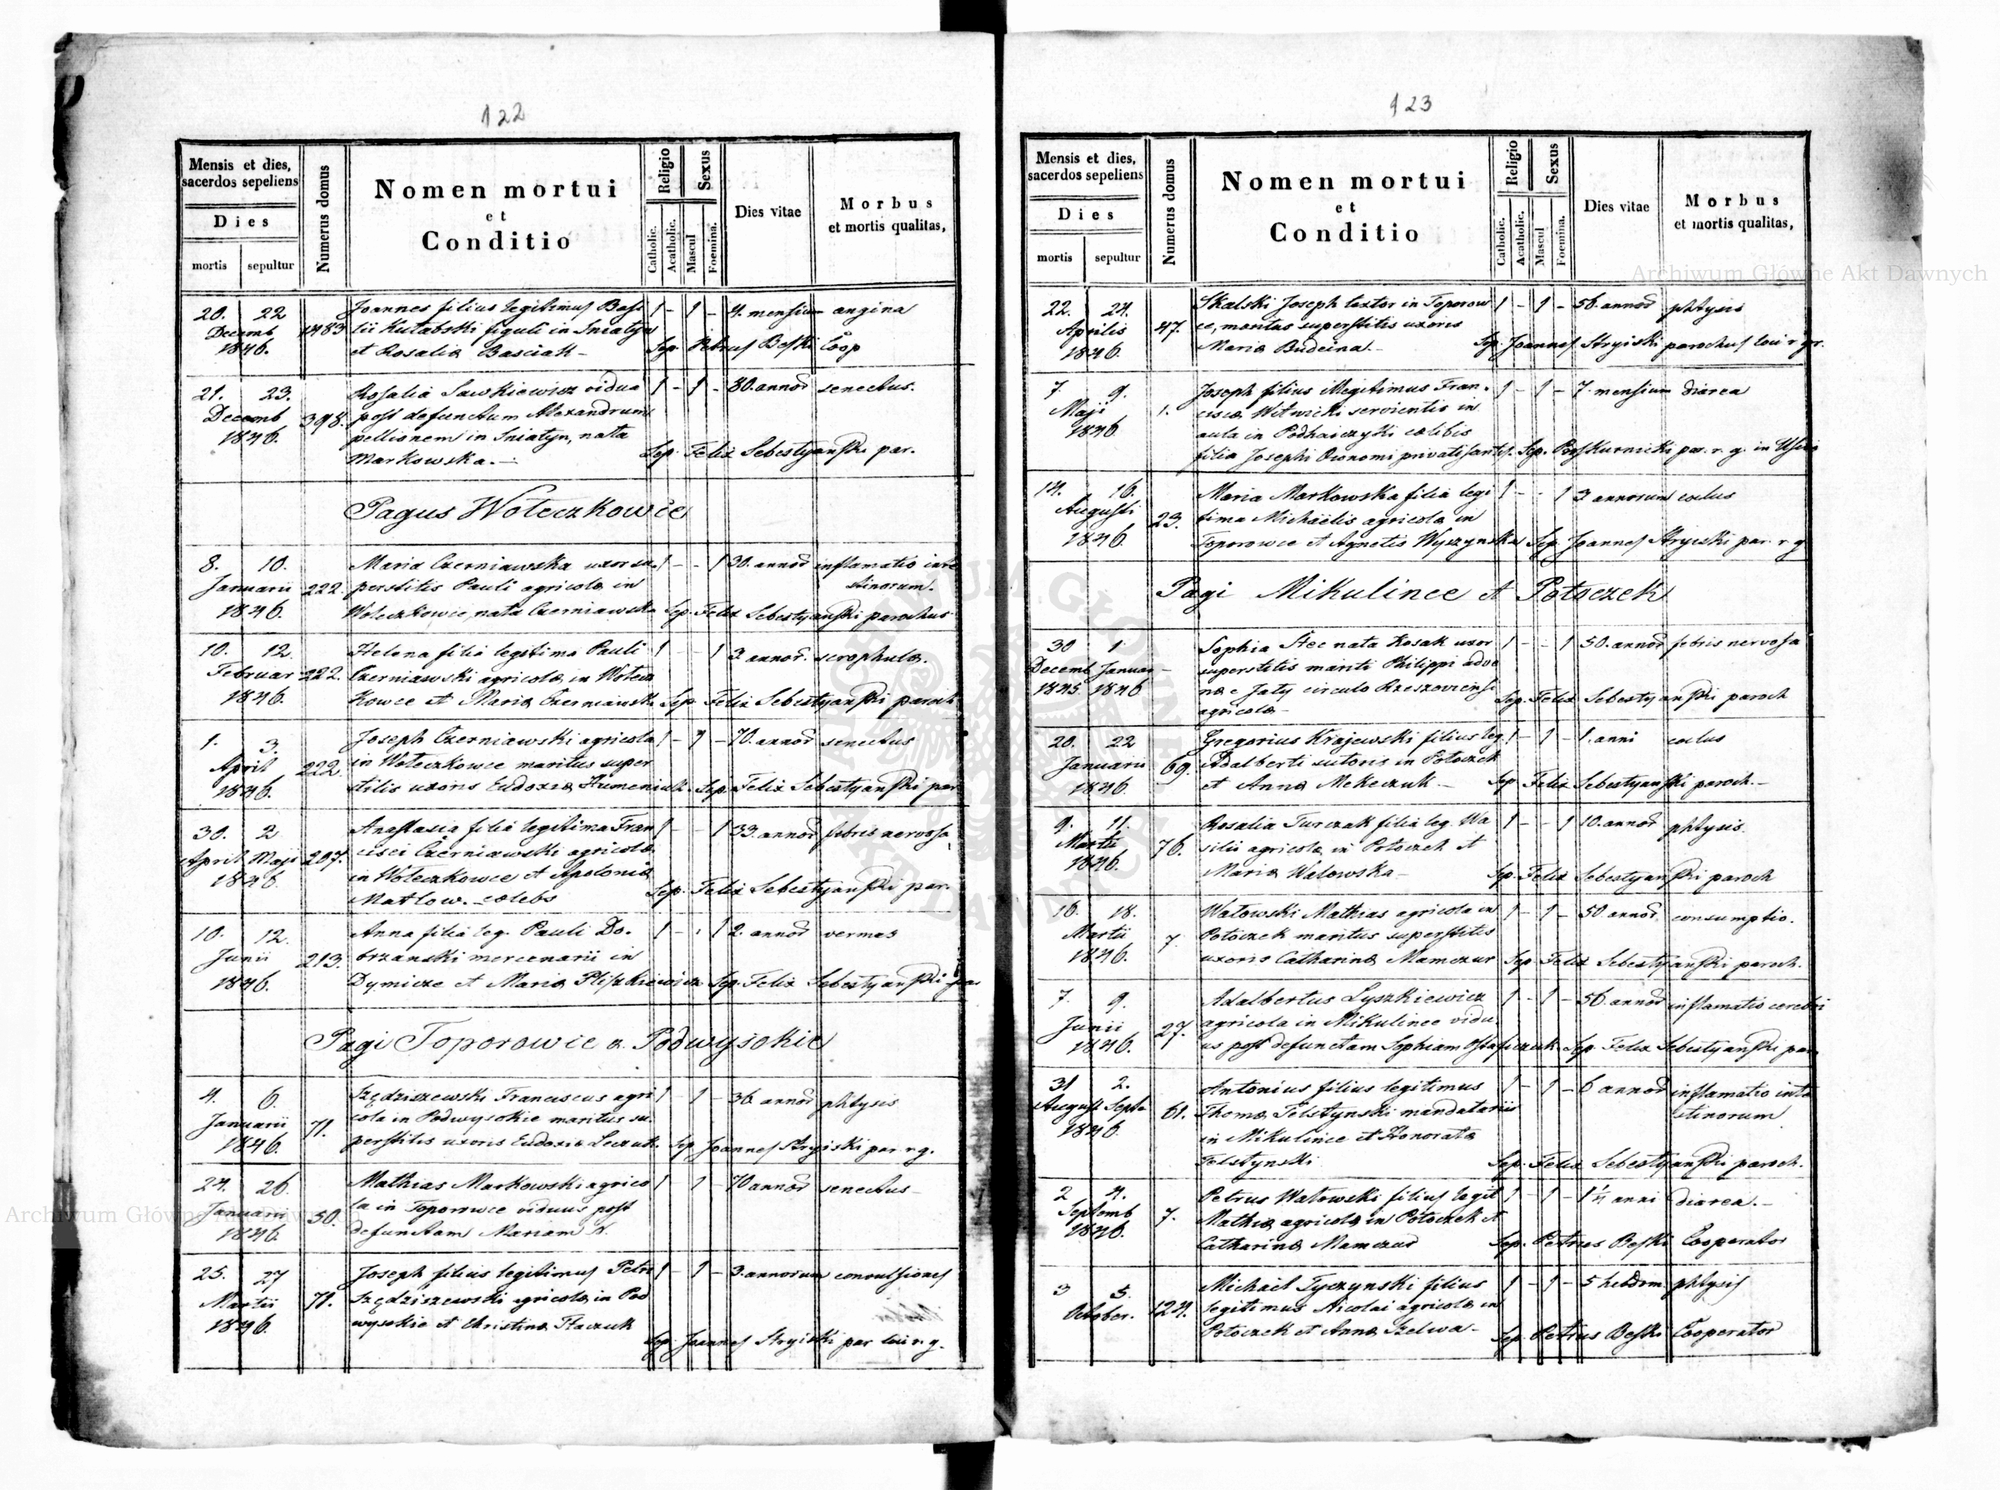 122
Mensis et dies,
sacerdos sepeliens
Dies
mortis
sepultur
Numerus domus
Nomen mortui
et
Conditio
Religio
Catholic.
Acatholic.
Sexus
Mascul
Foemina.
Dies vitae
Morbus
et mortis qualitas,
20. 22 Joannes filius legitimus Basi 1 - 1 - 4. mensium angina
Decemb 1483 lii figuli in Sniatyn
1846. et Rosalia Basciak - Sep. Petrus Beski Coop
21. 23. Rosalia Sawkiewicz vidua 1 - 1 - 80. annor senectus.
Decemb 398. post defunctum Alexandrum
1846. pellionem in Sniatyn, nata Sep. Felix Sebestyanski par.
Markowska. -
Pagus Wołeczkowce
8. 10. Maria Czerniawska uxor su 1 - - 1 30. annor inflamatio inte
Januarii 222. perstitis Pauli agricola in stinorum.
1846. Wołeczkowce, nata Czerniawska Sep. Felix Sebestyanski parochus
10. 12. Helena filia legitima Pauli 1 - - 1 3 annor. scrophula.
Februar 222. Czerniawski agricola in Wołecz
1846. kowce et Maria Czerniawsk Sep. Felix Sebestyanski paroch
1. 3. Joseph Czerniawski agricola 1 - 1 - 70. annor senectus
April 222. in Wołeczkowce maritus super
1846. stitis uxoris Eudoxia Humeniuk. Sep. Felix Sebestyanski par
30. 2 Anastasia filia legitima Fran 1 - - 1 33. annor febris nervosa
April Maji 207. cisci Czerniawski agricola
1846. in Wołeczkowce et Apolonia Sep. Felix Sebestyanski par.
Matlow. - caelebs
10. 12. Anna filia leg. Pauli Do. 1 - - 1 2. annor vermes
Junii 213. brzanski mercenarii in
1846. Dymicze et Maria Pliszkiewicz Sep. Felix Sebestyanski pa
Pagi Toporowce a. Podwysokie
4. 6. Szędziszewski Franciscus agri 1 - 1 - 36 annor phtysis
Januarii 71. cola in Podwysokie maritus su.
1846. perstitis uxoris Eudoxia Leczuk. Sep. Joannes Stryiski par r g.
24. 26 Mathias Markowski agrico 1 - 1 - 70 annor senectus
Januarii 50. la in Toporowce viduus post
1846. defunctam Mariam N.
25. 27 Joseph filius legitimus Petri 1 - 1 - 3. annorum convulsiones
Martii 71. Szędziszewski agricola in Pod
1846. wysokie et Christina Tkaczuk Sep. Joannes Stryiski par loci r g.
123
Mensis et dies,
sacerdos sepeliens
Dies
mortis
sepultur
Numerus domus
Nomen mortui
et
Conditio
Religio
Catholic.
Acatholic.
Sexus
Mascul
Foemina.
Dies vitae
Morbus
et mortis qualitas,
22. 24. Skalski Joseph textor in Toporow 1 - 1 - 56. annor phtysis
Aprilis 47. ce, maritus superstitis uxoris
1846. Maria Budeina. - Sep. Joannes Stryiski parochus loci r gr.
7 9. Joseph filius illegitimus Fran. 1 - 1 - 7. mensium diarea
Maji 1. cisca Witwicki servientis in
1846 aula in Podhaiczyki caelibis
filia Josephi Oeconomi privatisantis. Sep. par. r. g. in
14. 16. Maria Markowska filia legi 1 - - 1 3 annorum coctus
Augusti 23. tima Michaelis agricola in
1846. Toporowce et Agnetis Wyszynska Sep. Joannes Stryiski par. r g
Pagi Mikulince et Potoczek
30 1 Sophia Stec nata Kosak uxor 1 - - 1 50. annor febris nervosa
Decemb Januar superstitis mariti Philippi advo
1845 1846 na e Jaty circulo Rzeszoviensi Sep. Felix Sebestyanski paroch
agricola -
20. 22 Gregorius Krajewski filius leg. 1 - 1 - 1. anni coctus
Januarii 69. Adalberti sutoris in Potoczek
1846. et Anna Mekeczuk - Sep. Felix Sebestyanski paroch. -
9. 11. Rosalia Turczak filia leg. Wa 1 - - 1 10. annor phtysis.
Martii 76. silii agricola in Potoczek et
1846. Maria Wałowska - Sep. Felix Sebestyanski paroch
16. 18. Wałowski Mathias agricola in 1 - 1 - 50 annor. consumptio.
Martii 7. Potoczek maritus superstitis
1846. uxoris Catharina Mamczur Sep. Felix Sebestyanski paroch.
7. 9. Adalbertus Lyszkiewicz 1 - 1 - 56. annor inflamatio cerebri
Junii 27. agricola in Mikulince vidu.
1846. us post defunctam Sophiam Ostafieczuk Sep. Felix Sebestyanski par
31 2. Antonius filius legitimus 1 - 1 - 6 annor inflamatio inte
August Septe 61. Thoma Telstynski mandatarii stinorum
1846. in Mikulince et Honorata
Felstynski Sep. Felix Sebestyanski paroch.
2 4. Petrus Wałowski filius legit 1 - 1 - 1 1/4 anni diarea. -
Septemb 7. Mathia agricola in Potoczek et
1846. Catharina Mamczur Sep. Petrus Beski Cooperator
3 5. Michael Tyczynski filius 1 - 1 - 5 hebdom phtysis
October. 124. legitimus Nicolai agricola in
Potoczek et Anna Szelwa - Sep. Petrus Beski Cooperator
Archiwum Główne Akt Dawnych
Archiwum Główne Akt Dawnych
ARCHIWUM GŁÓWNE AKT DAWNYCH